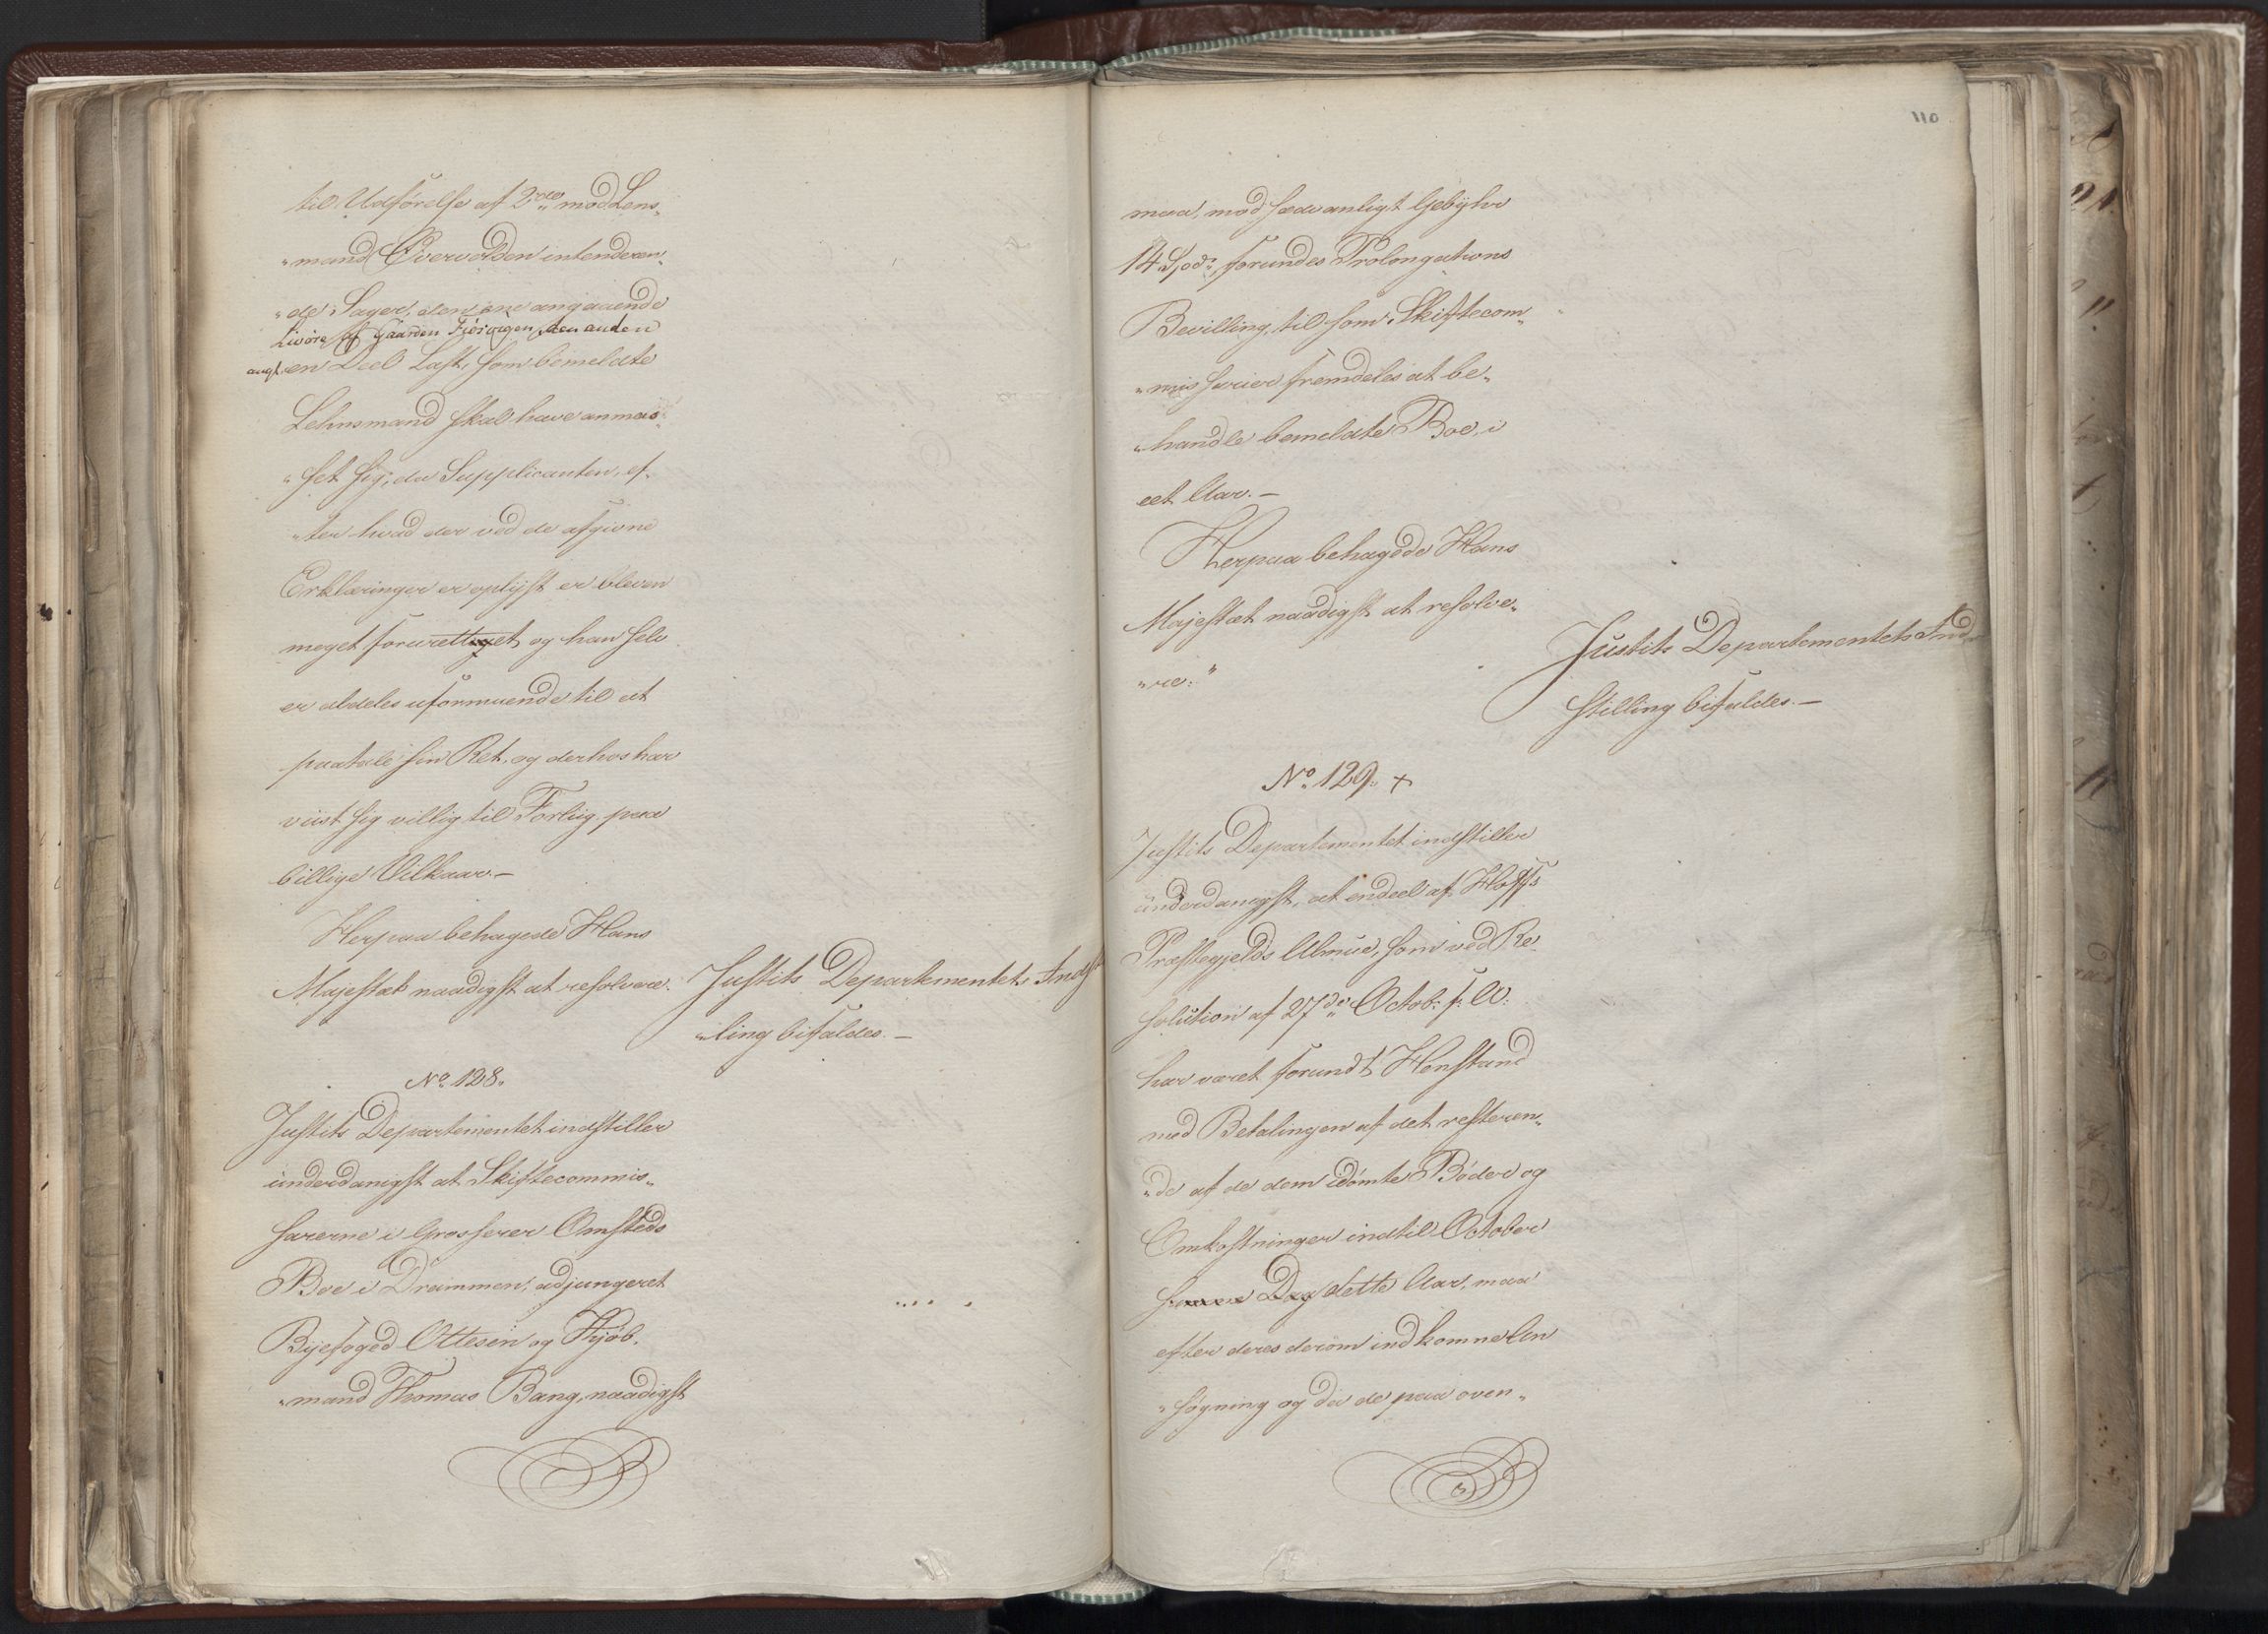 til Udførelse af 2de mod Lens„
„mand Øververden intenderen„
„de Sager, den ene angaaende
Livøre af Gaarden Fjøsigen, den anden
angl. en Deel Last, som bemeldte
Lehnsmand skal have anmas„
„set sig; da Supplicanten, ef„
„ter hvad der ved de afgivne
Erklæringer er oplyst er bleven
meget forurettet og han selv
er aldeles uformuende til at
paatale sin Ret, og derhos har
viist sig villig til Forliig paa
billige Vilkaar.—
Herpaa behagede Hans
Majestæt naadigst at resolvere.
Justits Departementets Indst
„ling bifaldes.—
No. 128.
Justits Departementet indstiller
underdanigst at Skiftecommis„
sairerne i Grosserer Omsteds
Boe i Drammen, adjungeret
Byefoged Ottesen og Kjøb„
„mand Thomas Bang, naadigst
110
maa, mod sædvanligt Gebyhr
14 Spds., forundes Prolongations
Bevilling, til som Skiftecom„
„missairer fremdeles at be„
„handle bemeldte Boe, i
eet Aar.—
Herpaa behagede Hans
Majestæt naadigst at resolve„
„re:"
Justits Departementets Ind„
stilling bifaldes.—
No. 129. +
Justits Departementet indstiller
underdanigst, at endeel af Hoffs
Præstegjelds Almue, som ved Re„
solution af 27de Octob: f. A:
har været forundt Henstand
med Betalingen af det resteren„
„de af de dem idømte Bøder og
Omkostninger indtil October
samme Dag dette Aar, maa
efter deres derom indkomne An
„søgning og da de paa oven„